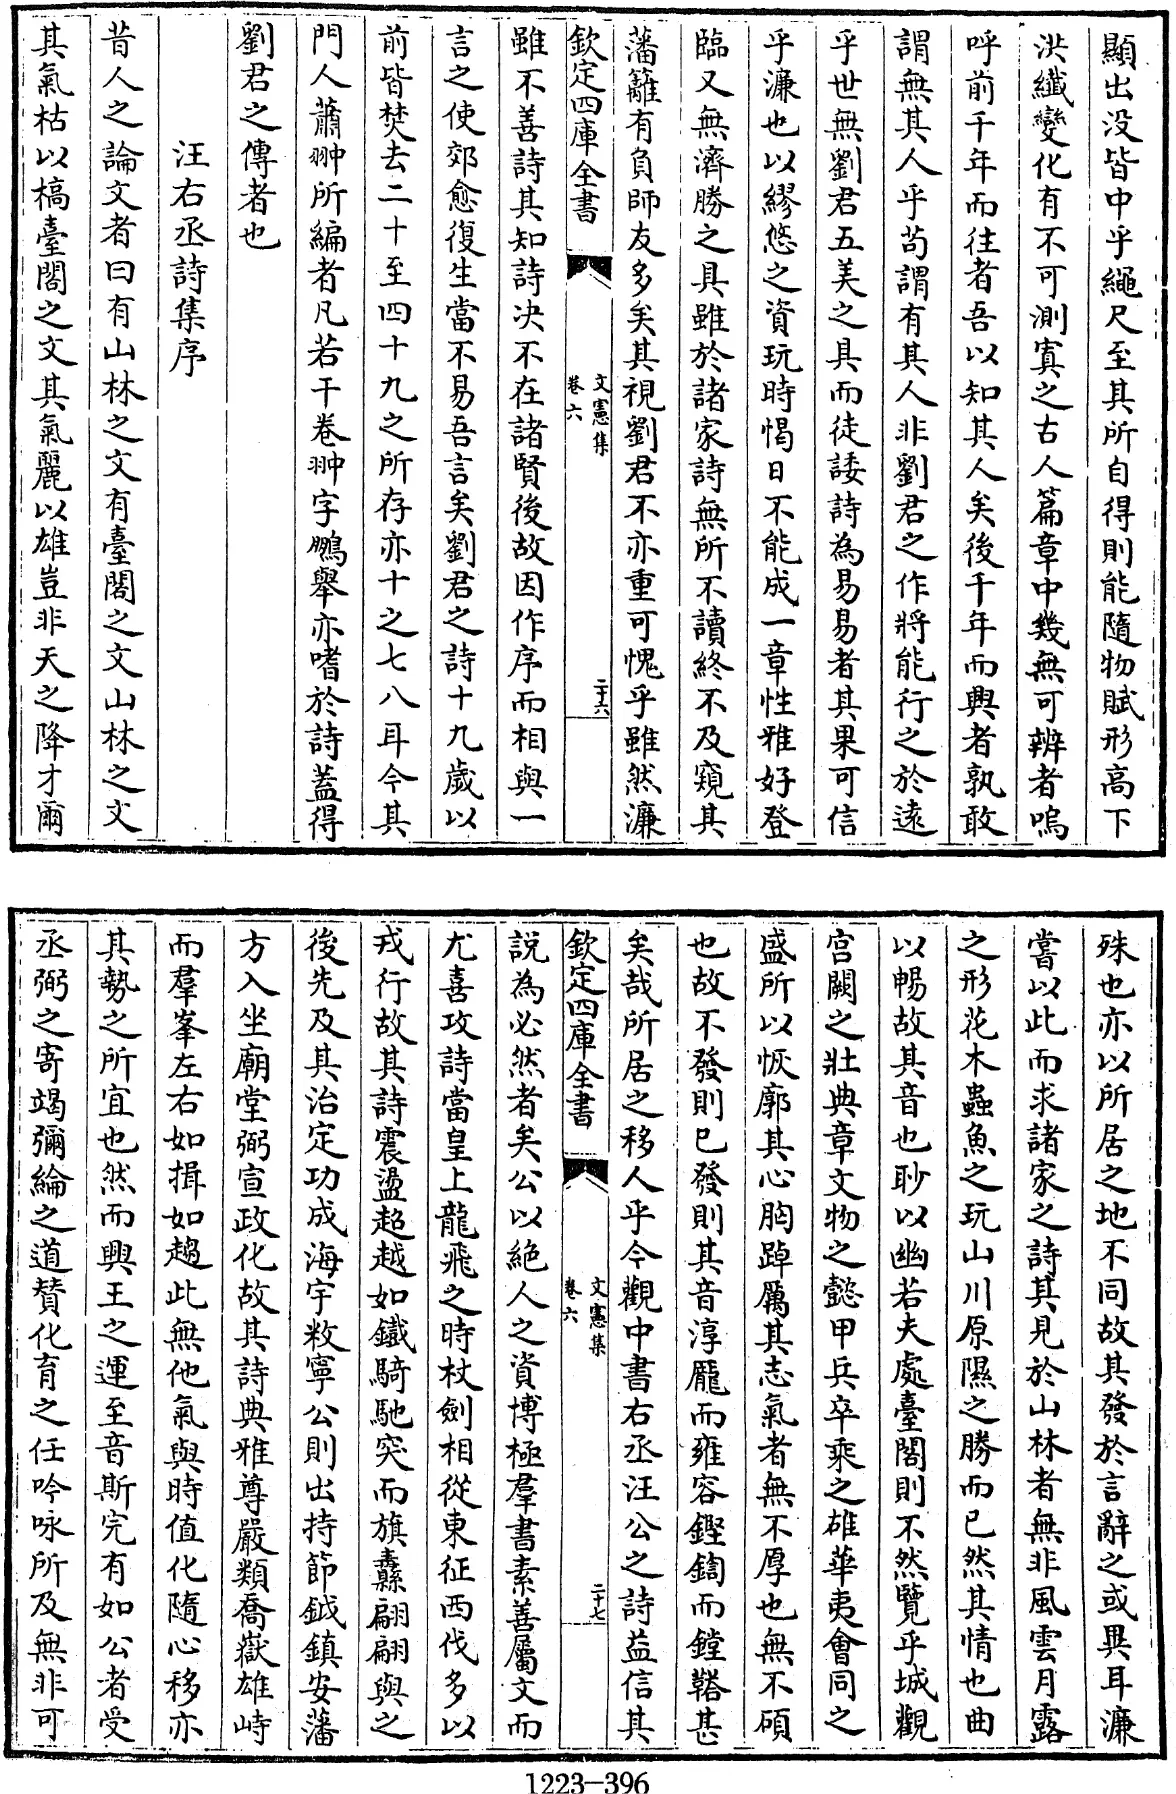 顯出没皆中乎繩尺至其所自得則能隨物賦形髙下
洪纎變化有不可測寘之古人篇章中幾無可辨者嗚
呼前千年而往者吾以知其人矣後千年而興者孰敢
謂無其人乎茍謂有其人非劉君之作將能行之於逺
乎世無劉君五美之具而徒諉詩為易易者其果可信
乎濂也以繆悠之資玩時愒日不能成一章性雅好登
臨又無濟勝之具雖於諸家詩無所不讀終不及窺其
藩籬有負師友多矣其視劉君不亦重可愧乎雖然濂
欽定四庫全書
文憲集
卷六
二十六
雖不善詩其知詩决不在諸賢後故因作序而相與一
言之使郊愈復生當不易吾言矣劉君之詩十九歲以
前皆焚去二十至四十九之所存亦十之七八耳今其
門人蕭翀所編者凡若干卷翀字鵬舉亦嗜於詩葢得
劉君之傳者也
汪右丞詩集序
昔人之論文者曰有山林之文有臺閣之文山林之文
其氣枯以槁臺閣之文其氣麗以雄豈非天之降才爾
殊也亦以所居之地不同故其發於言辭之或異耳濂
嘗以此而求諸家之詩其見於山林者無非風雲月露
之形花木蟲魚之玩山川原隰之勝而已然其情也曲
以暢故其音也眇以幽若夫處臺閣則不然覽乎城觀
宫闕之壯典章文物之懿甲兵卒乘之雄華夷㑹同之
盛所以恢廓其心胸踔厲其志氣者無不厚也無不碩
也故不發則已發則其音淳龎而雍容鏗鍧而鏜鞳甚
矣哉所居之移人乎今觀中書右丞汪公之詩益信其
欽定四庫全書
文憲集
卷六
二十七
説為必然者矣公以絶人之資博極羣書素善屬文而
尤喜攻詩當皇上龍飛之時杖劍相從東征西伐多以
戎行故其詩震盪超越如鐵騎馳突而旗纛翩翩與之
後先及其治定功成海宇敉寧公則出持節鉞鎮安藩
方入坐廟堂弼宣政化故其詩典雅尊嚴類喬嶽雄峙
而羣峯左右如揖如趨此無他氣與時值化隨心移亦
其勢之所宜也然而興王之運至音斯完有如公者受
丞弼之寄竭彌綸之道賛化育之任吟咏所及無非可
1223—396